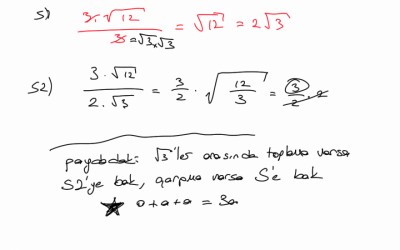 S) 3.√12 / 3=√3x√3 = √12 = 2√3
S2) 3.√12 / 2.√3 = 3/2 . √12/3 = 3/2 . 2
paydadaki √3'ler arasında toplama varsa
S2'ye bak, çarpma varsa S'e bak
★ a+a+a = 3a